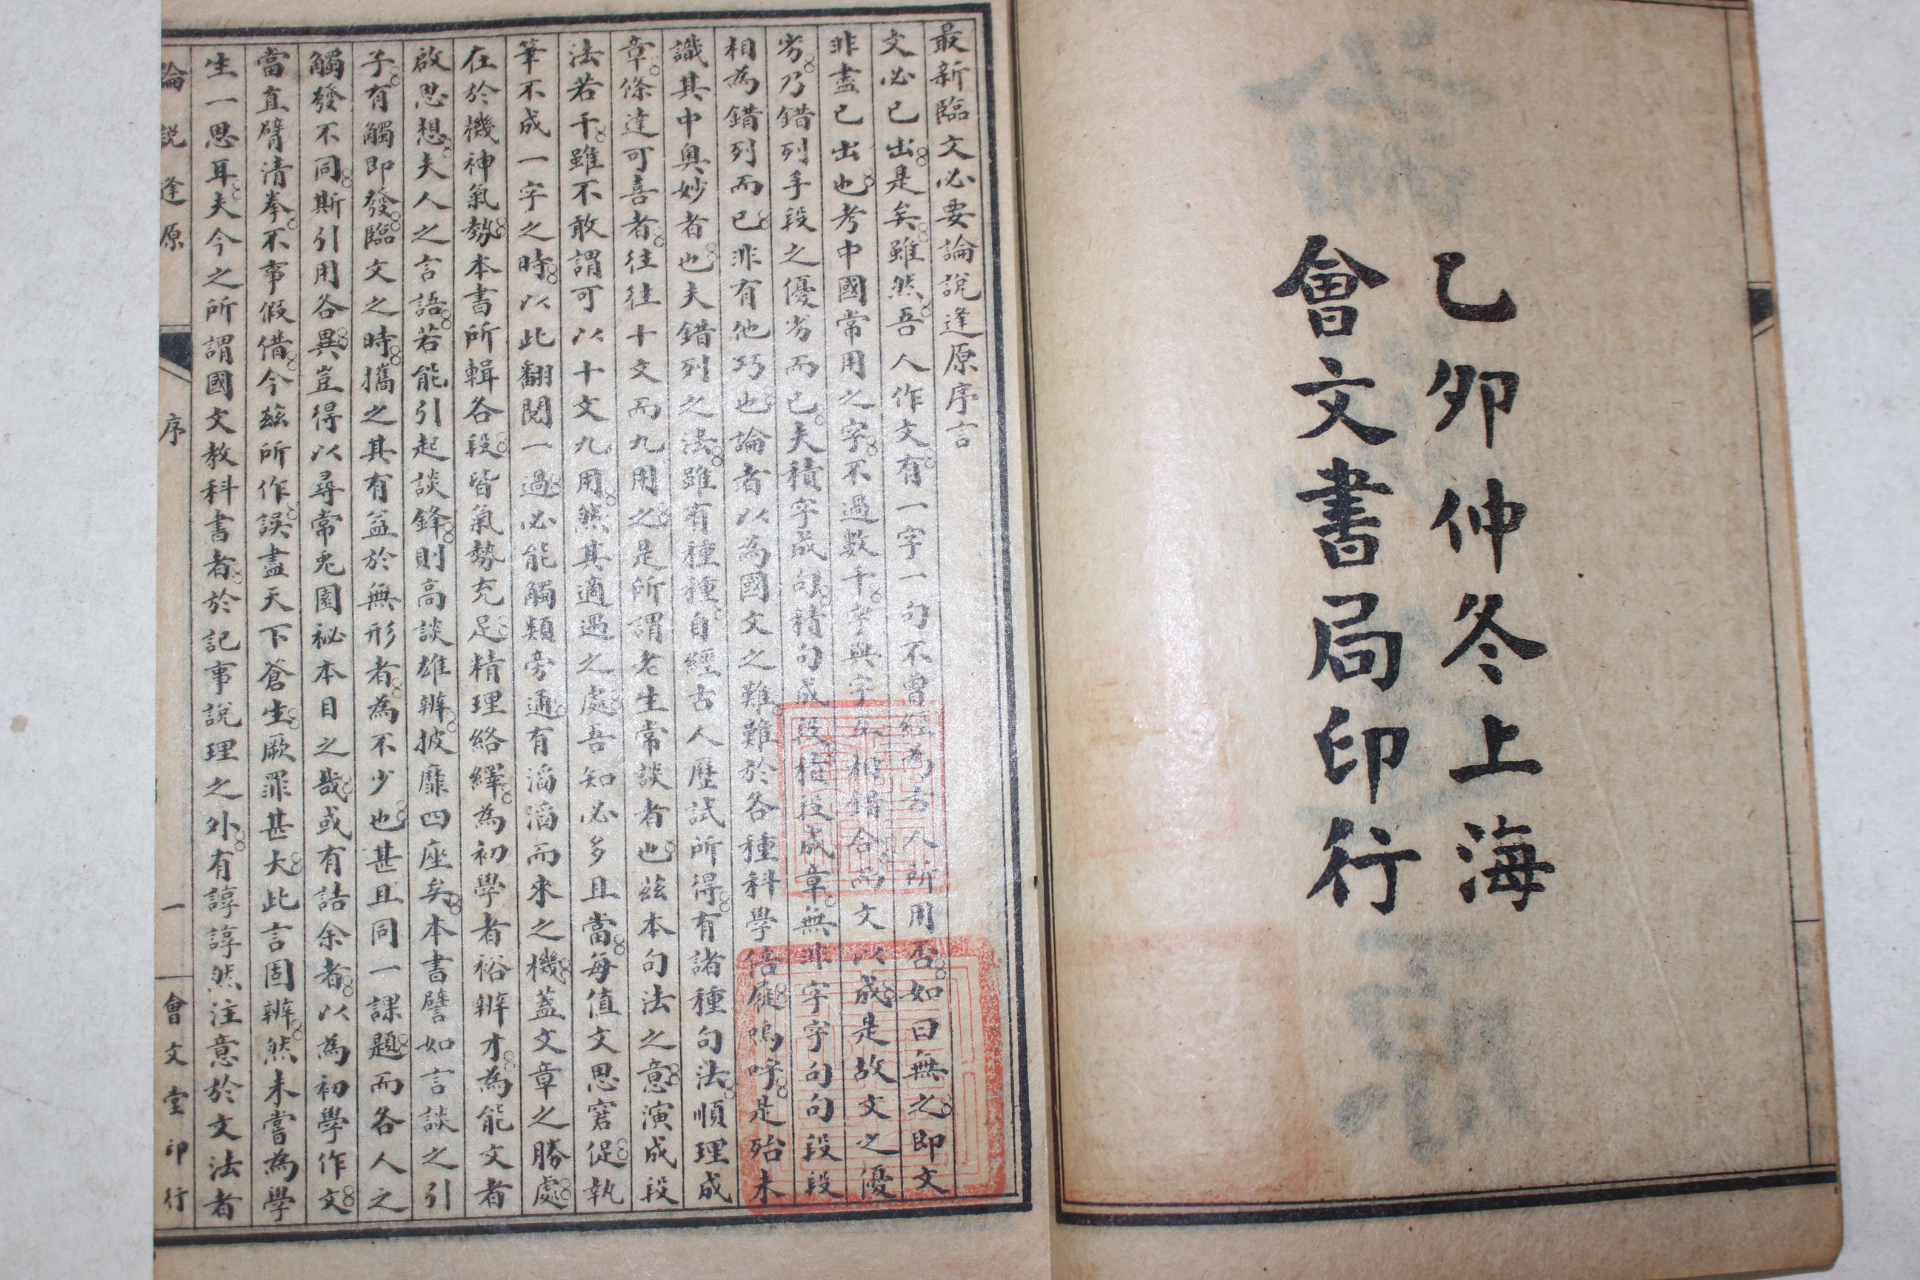 乙卯仲冬上海
會文書局印行
最新臨文必要論說逢原序言
文必已出是矣雖然吾人作文有一字一句不曾經為古人所用否如曰無之即文
非盡已出也考中國常用之字不過數千字與字互相錯合而文以成是故文之優
劣乃錯列手段之優劣而已夫積字成句積句成段積段成章無非字字句句段段
相為錯列而已非有他巧也論者以為國文之難難於各種科學倍蓰嗚呼是殆未
識其中奧妙者也夫錯列之法雖有種種自經古人歷試所得有諸種句法順理成
章條達可喜者往往十文而九用之是所謂老生常談者也茲本句法之意演成段
法若干雖不敢謂可以十文九用然其適遇之處吾知必多且當每值文思窘促執
筆不成一字之時以此翻閱一過必能觸類旁通有滔滔而來之機蓋文章之勝處
在於機神氣勢本書所輯各段皆氣勢充足精理絡繹為初學者裕辨才為能文者
啟思想夫人之言語若能引起談鋒則高談雄辨披靡四座矣本書譬如言談之引
子有觸即發臨文之時攜之其有益於無形者為不少也甚且同一課題而各人之
觸發不同斯引用各異豈得以尋常兎園祕本目之哉或有詰余者以為初學作文
當直臂清拳不事假借今茲所作誤盡天下蒼生厥罪甚大此言固辨然未嘗為學
生一思耳夫今之所謂國文教科書者於記事說理之外有諄諄然注意於文法者
論說逢原 序 一 會文堂印行